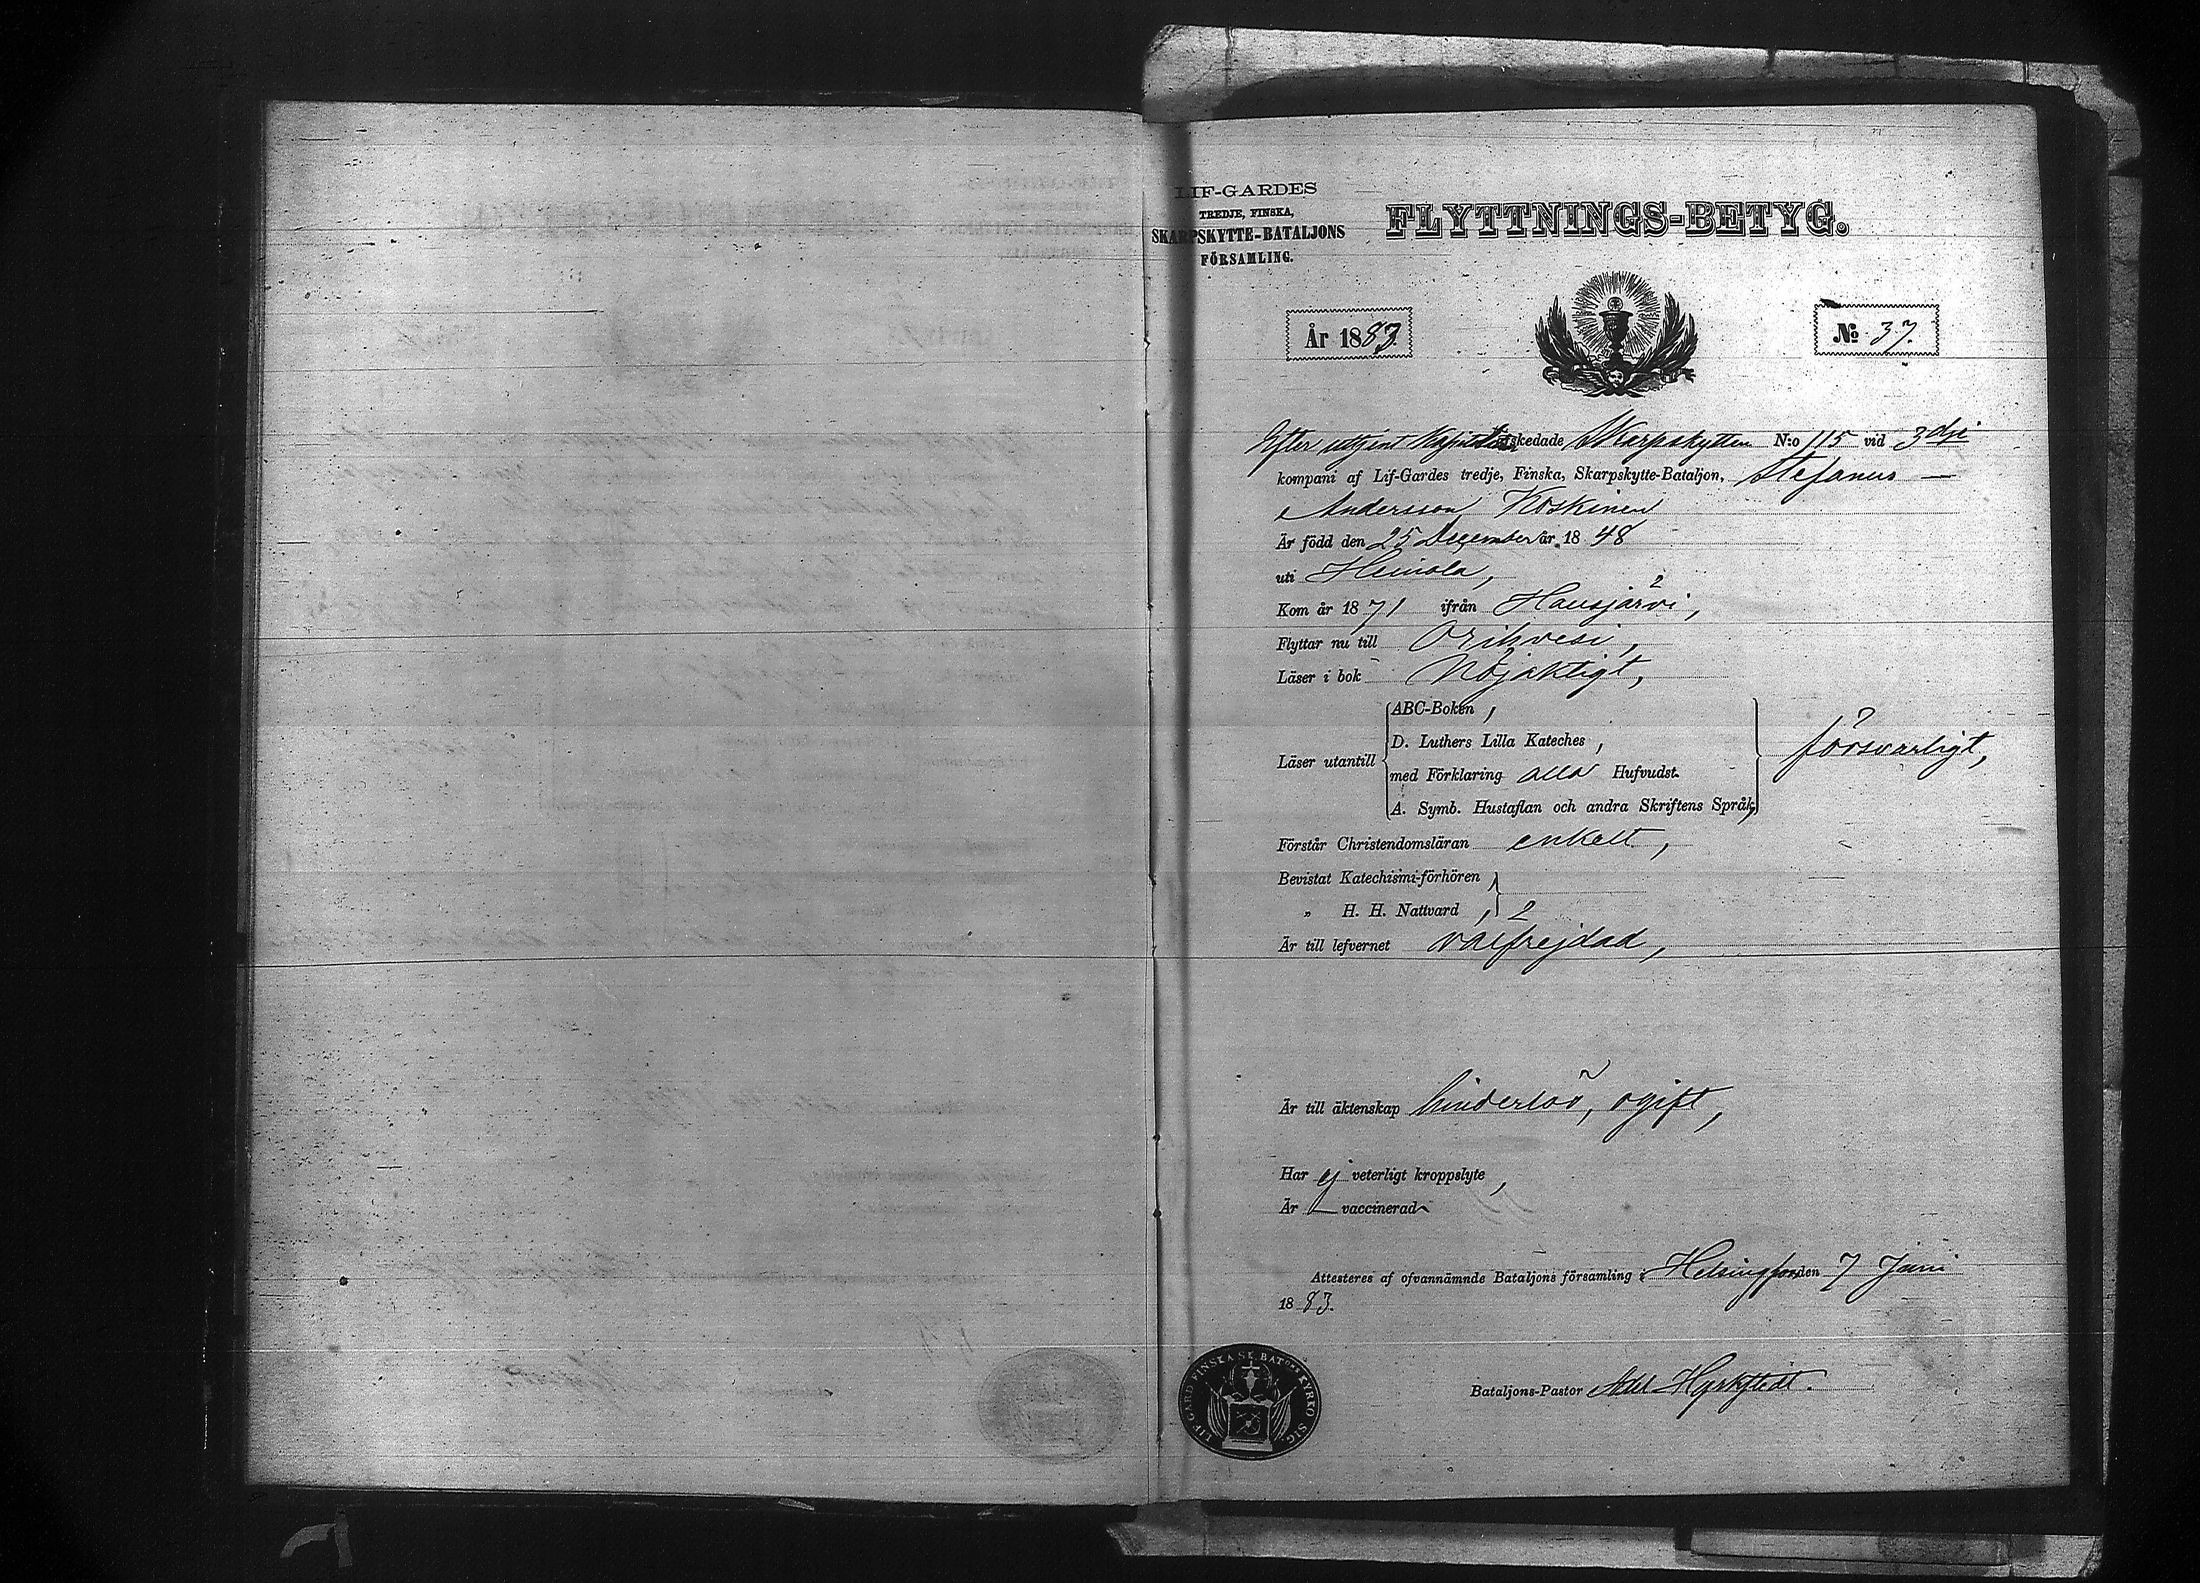 LIF-GARDES
TREDJE, FINSKA,
SKARPSKYTTE-BATALJONS
FÖRSAMLING.
FLYTTNINGS-BETYG.
År 1883.
No 37.
Efter utgjent Kapitulat afskedade Skarpskytten N:o 115 vid 3dje
kompani af Lif-Gardes tredje, Finska, Skarpskytte-Bataljon, Stefanus
Andersson Koskinen
Är född den 25 December år 1848
uti Heinola,
Kom år 1871 ifrån Hausjärvi,
Flyttar nu till Orihvesi,
Läser i bok Nöjaktigt,
Läser utantill
ABC-Boken,
D. Luthers Lilla Kateches,
med Förklaring alla Hufvudst.
A. Symb. Hustaflan och andra Skriftens Språk,
försvarligt,
Förstår Christendomsläran enkelt,
Bevistat Katechismi-förhören,
„ H. H. Nattvard, 2
Är till lefvernet välfrejdad,
Är till äktenskap hinderlös, ogift,
Har ej veterligt kroppslyte,
Är vaccinerad
Attesteras af ofvannämnde Bataljons församling i Helsingfors den 7 Juni
1883.
LIF GARD FINSKA SK. BATONS KYRKO SIG.
Bataljons-Pastor